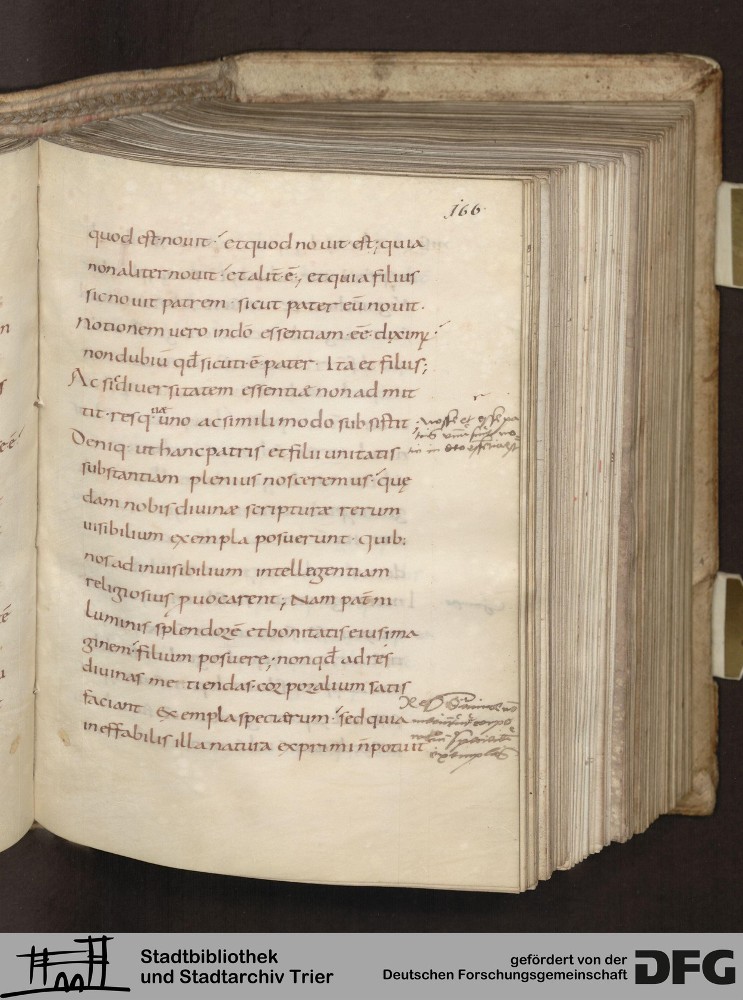 166.
quod est nouit· et quod nouit est; quia
non aliter nouit· et alit̄ ē; et quia filius
sic nouit patrem· sicut pater eū nouit·
Notionem uero indō essentiam· eē diximꝰ·
non dubiū qđ sicuti ē pater· Ita et filius;
Ac si diuersitatem essentiæ non admit
tit· resq· unā uno ac simili modo subsistit·
Deniq· ut hanc patris et filii unitatis
substantiam plenius nosceremus· quę
dam nobis diuinæ scripturæ rerum
uisibilium exempla posuerunt· quib;
nos ad inuisibilium intellegentiam
religiosius puocarent; Nam pat̄ni
luminis splendorē et bonitatis eius ima
ginem· filium posuere; non qđ ad rēs
diuinas metiendas· corporalium satis
faciant exempla specierum· sed quia
ineffabilis illa natura exprimi n̄ potuit
nosse et esse pa
exemplis
Stadtbibliothek
und Stadtarchiv Trier
gefördert von der
Deutschen Forschungsgemeinschaft
DFG